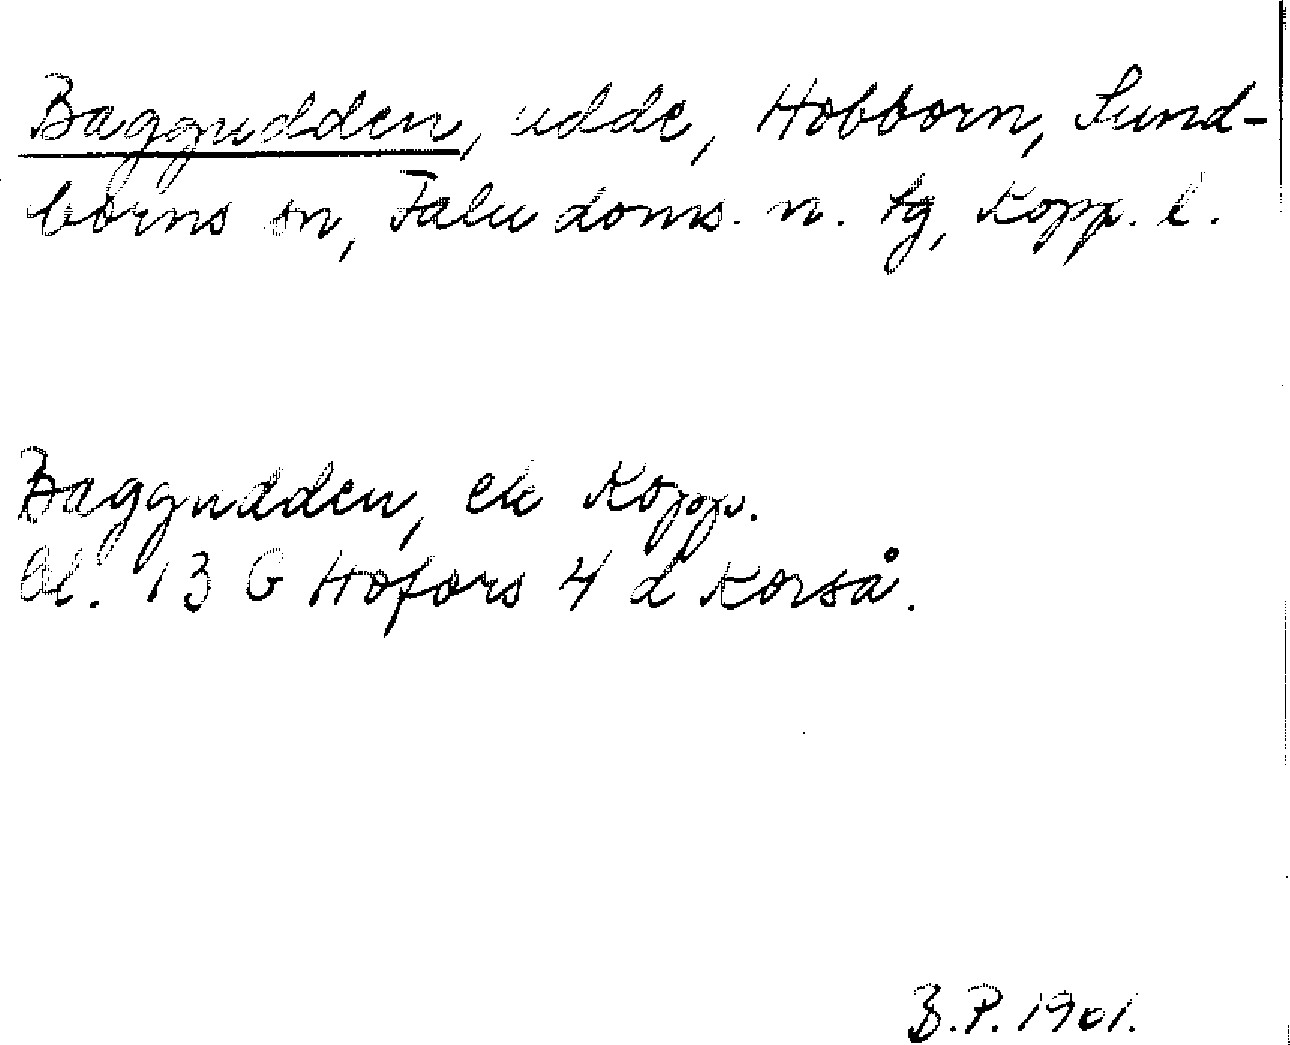 Baggudden, udde, Hobborn, Sund-
borns sn, Falu doms. n. tg, Kopp. l.
Baggudden, ek Kopp.
Bl. 13 G Hofors 4 d Korså.
B.P. 1901.